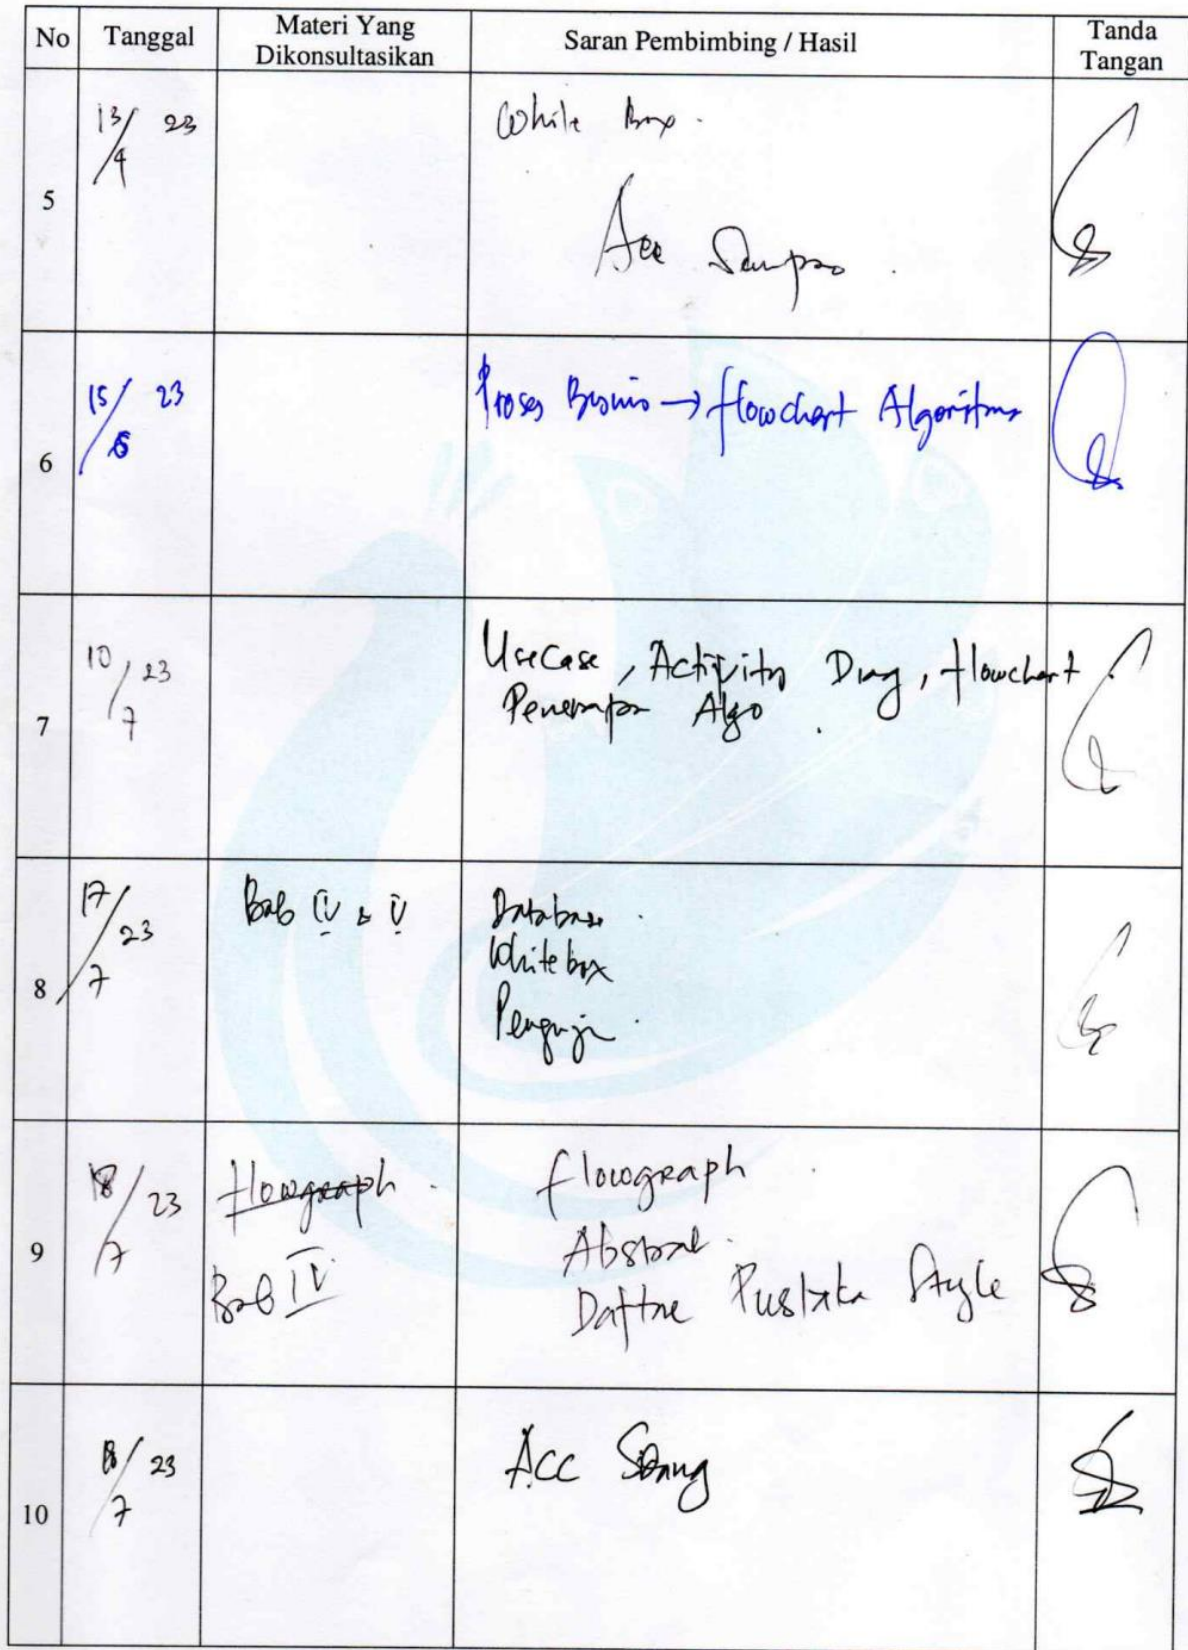 No Tanggal Materi Yang Dikonsultasikan Saran Pembimbing / Hasil Tanda Tangan
5 13/4 23 White Box.
Acc Sempro.
6 15/6 23 Proses Bisnis → flowchart Algoritma
7 10/7 23 UseCase, Activity Diag, flowchart
Penerapan Algo.
8 17/7 23 Bab IV & V Database.
Whitebox
Penguji.
9 18/7 23 flowgraph. flowgraph.
Bab IV Abstrak.
Daftar Pustaka Style
10 18/7 23 Acc Sidang